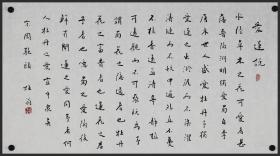 愛蓮說
水陸草木之花可愛者甚
蕃晉陶淵明獨愛菊自李
唐來世人盛愛牡丹予獨
愛蓮之出淤泥而不染濯
清漣而不妖中通外直不蔓
不枝香遠益清亭亭静植
可遠觀而不可褻玩焉予
謂菊花之隱逸者也牡丹
花之富貴者也蓮花之君
子者也噫菊之愛陶後
鮮有聞蓮之愛同予者何
人牡丹之愛宜乎衆矣